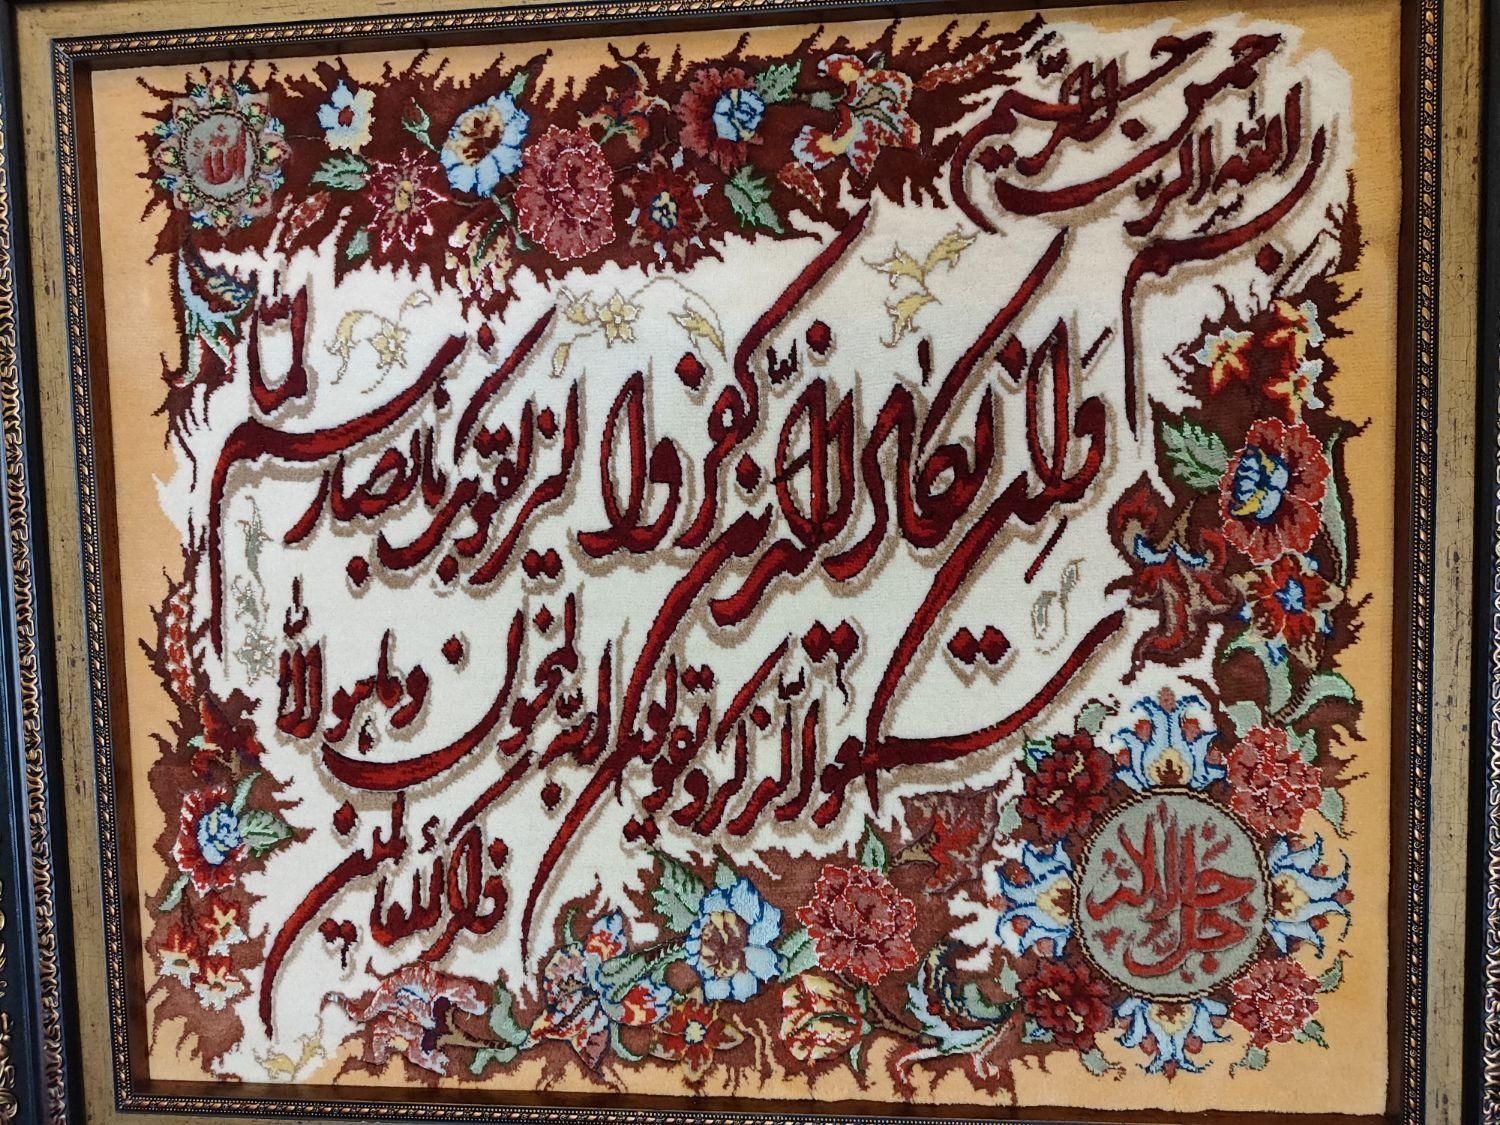 بسم الله الرحمن الرحیم
وَاِن یکاد الذین کفروا لیزلقونک بابصارهم لمّا
سمعوا الذکر و یقولون انه لمجنون و ماهو الا
ذکر للعالمین
الله
جل جلاله